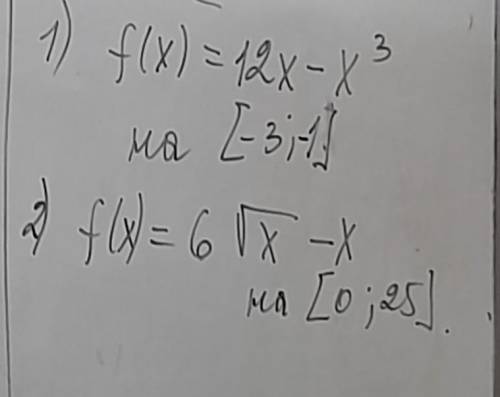 1) f(x) = 12x - x³
на [-3; -1]
2) f(x) = 6 √x - x
на [0; 25].